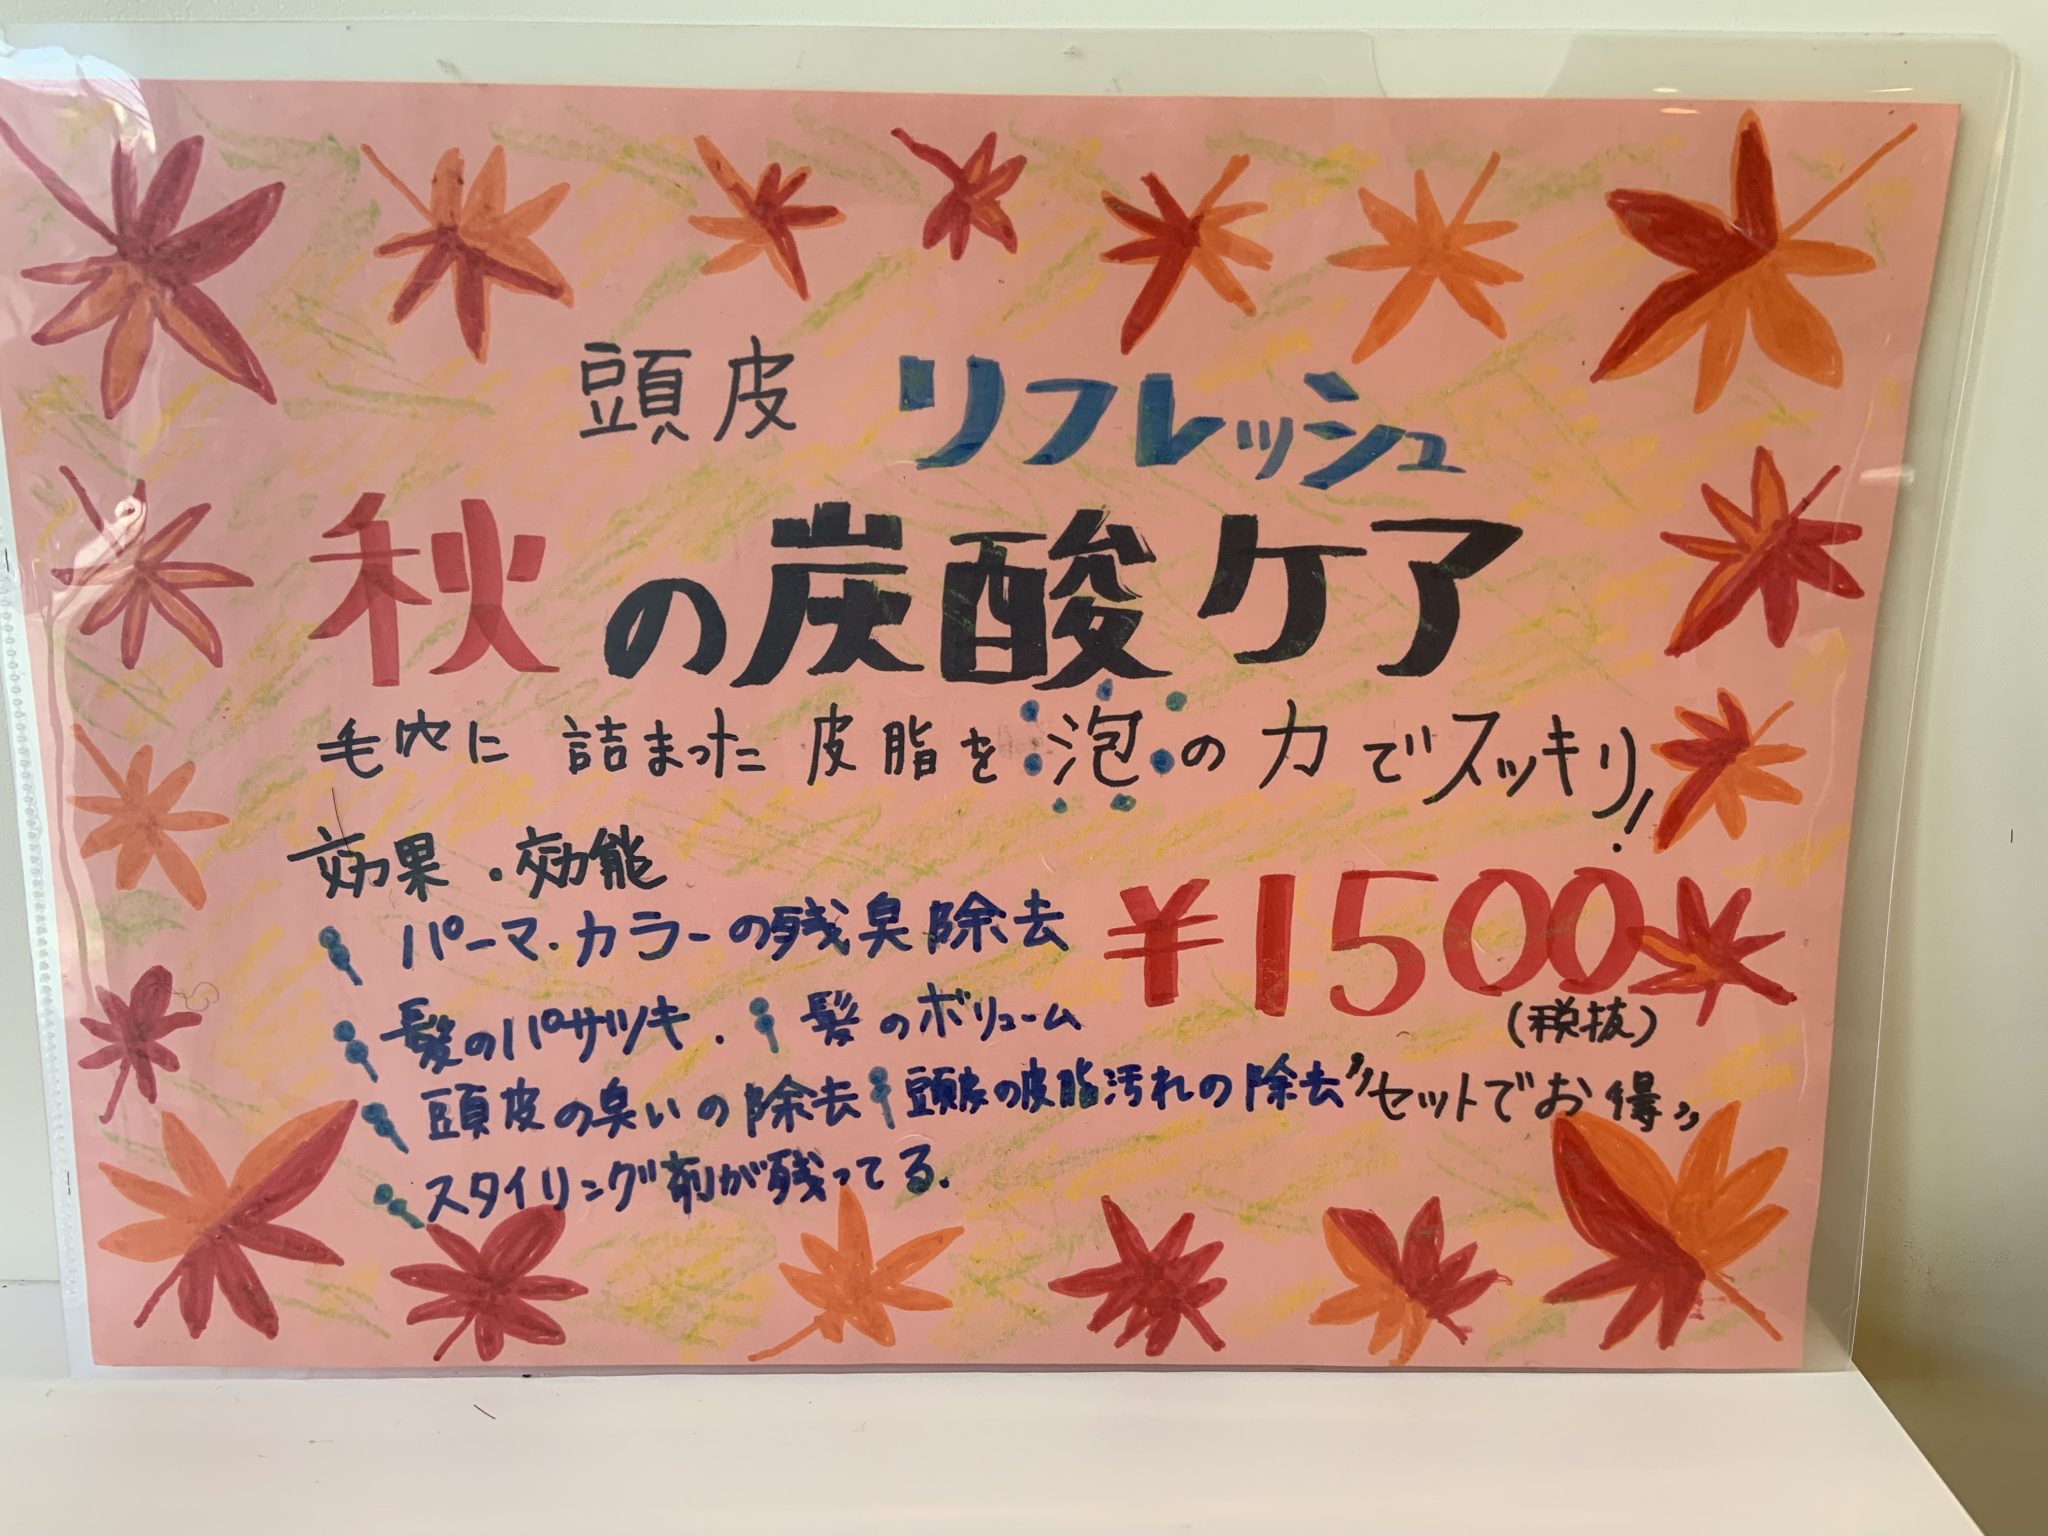 頭皮 リフレッシュ
秋の炭酸ケア
毛穴に 詰まった 皮脂を 泡の力でスッキリ!
効果・効能
パーマ・カラーの残臭除去
¥1500
(税抜)
髪のパサツキ. 髪のボリューム
頭皮の臭いの除去 頭皮の皮脂汚れの除去 〃セットでお得〃
スタイリング剤が残ってる.